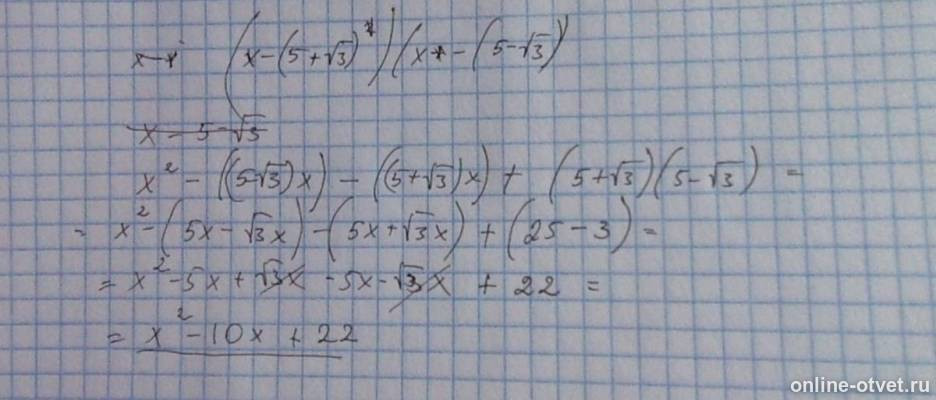 x-x (x-(5+√3))(x-(5-√3)
x-5-√3
x²-((5-√3)x)-((5+√3)x)+(5+√3)(5-√3)=
=x²-(5x-√3x)-(5x+√3x)+(25-3)=
=x²-5x+√3x-5x-√3x+22=
=x²-10x+22
online-otvet.ru